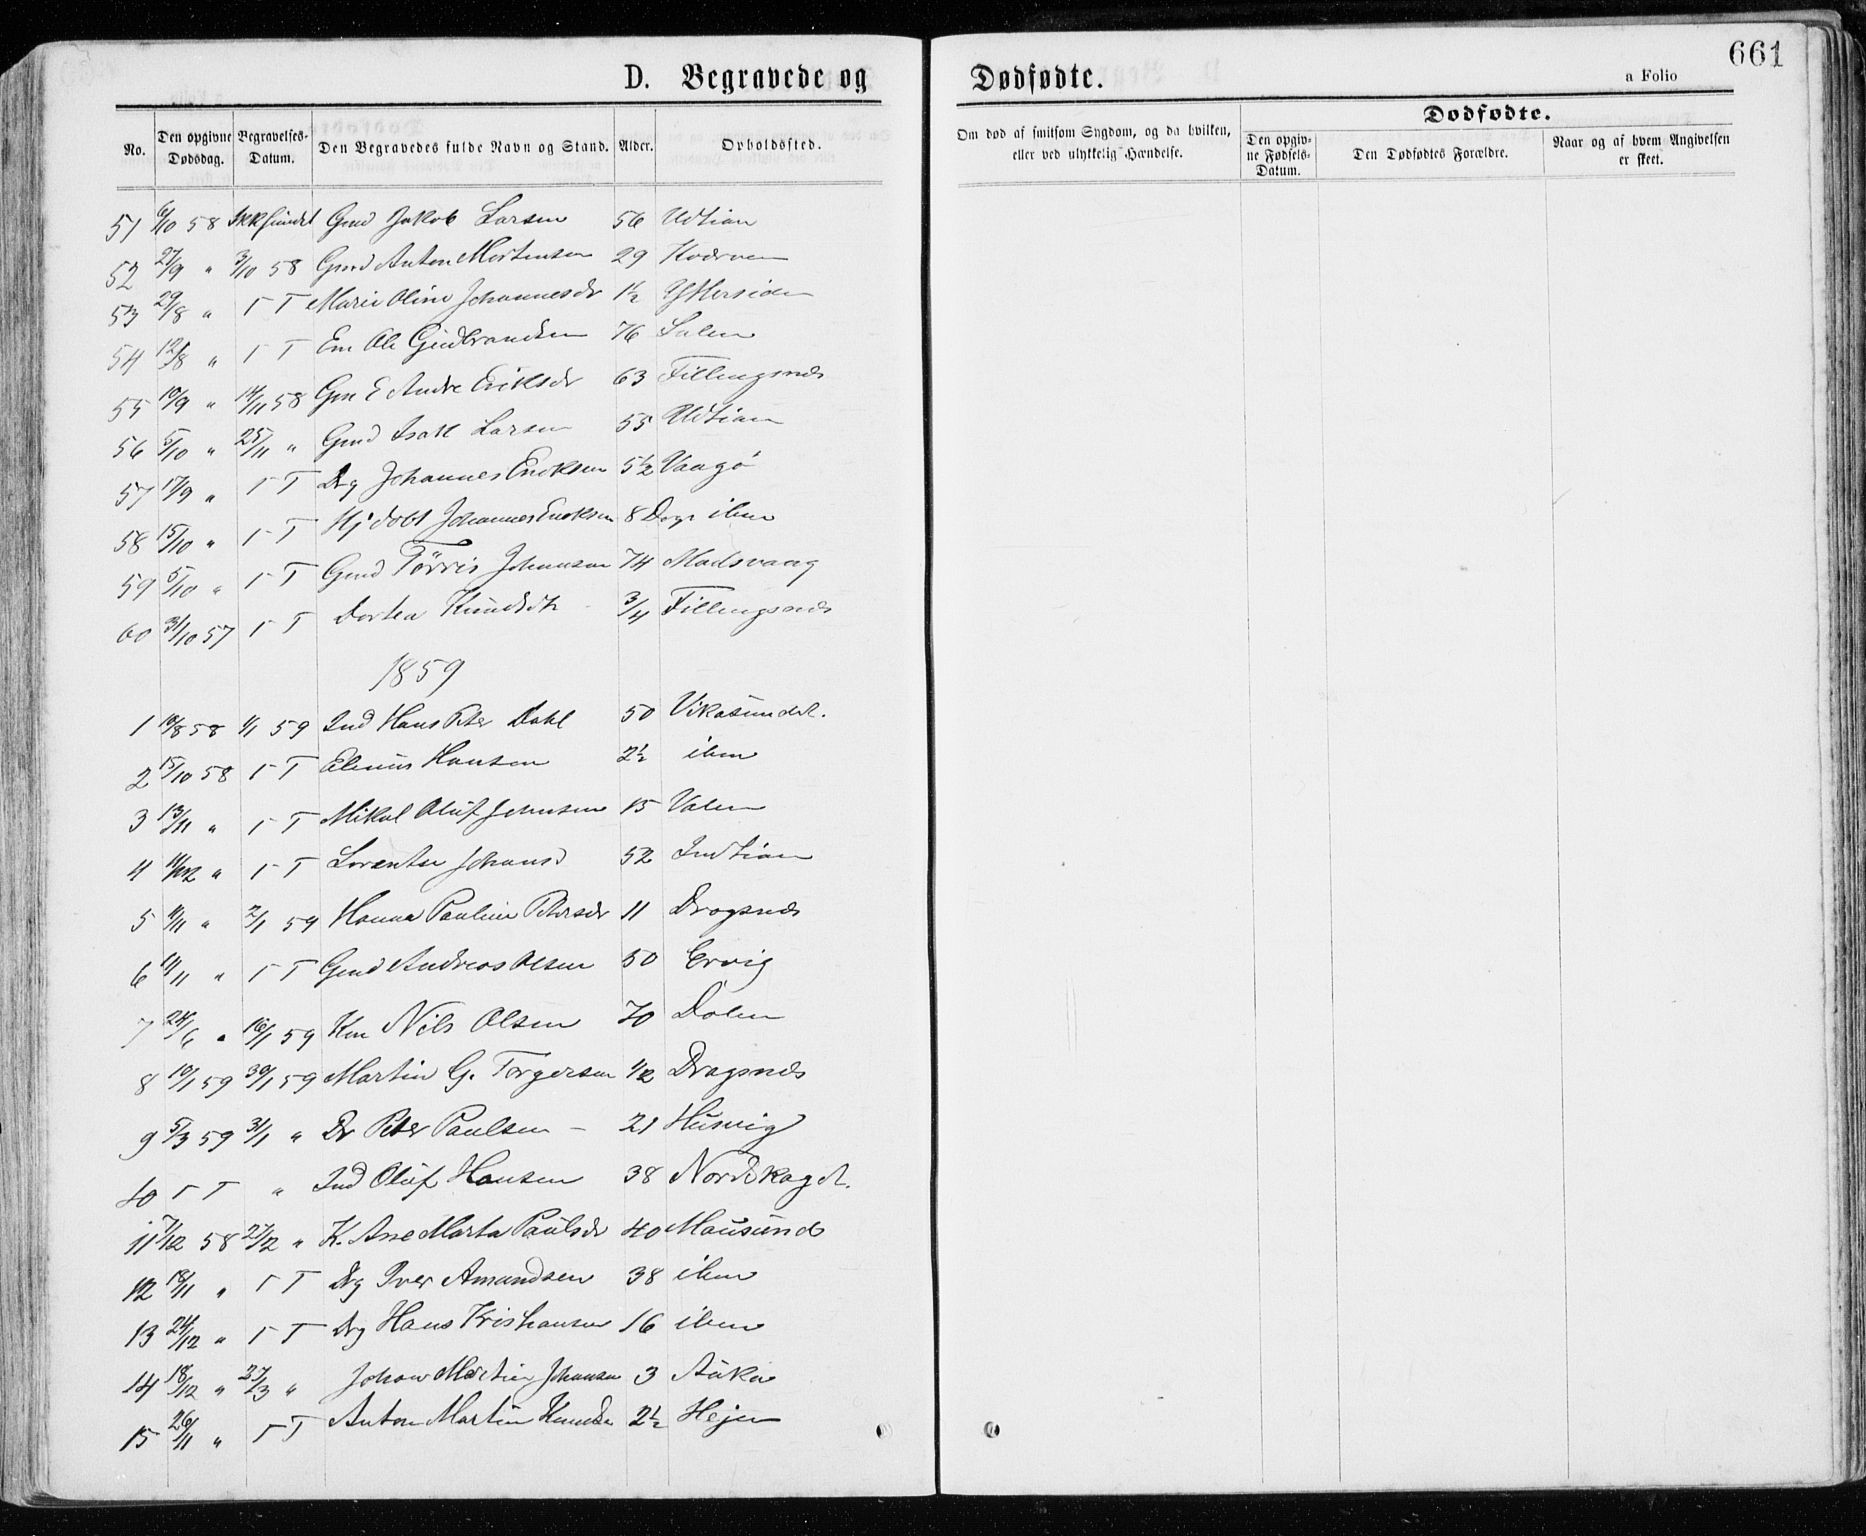 661
D. Begravede og Dødfødte.
a Folio
No. Den opgivne Dødsdag. Begravelses-Datum. Den Begravedes fulde Navn og Stand. Alder. Opholdssted.
Om død af smitsom Sygdom, og da hvilken, eller ved ulykkelig Hændelse.
Dødfødte.
Den opgivne Fødsels-Datum. Den Dødfødtes Forældre. Naar og af hvem Angivelsen er skeet.
51 6/10 58 Ikkefundet Gmd Jakob Larsen 56 Udtian
52 27/9 " 3/10 58 Gmd Anton Mortensen 29
53 29/8 " I T Marie Oline Johannesdr 1½ Yttersiden
54 12/8 " I T Em Ole Gudbrandsen 76 Salen
55 10/9 " 14/11 58 Gm E Andre Eriksdr 63 Fillingsnes
56 5/10 " 25/11 " Gmd Isak Larsen 55 Udtian
57 17/9 " I T Drg Johannes Eriksen 5½ Vaagø
58 15/10 " I T Hj døbt Johannes Eriksen 8 Dage ibm
59 5/10 " I T Gmd Tørris Johansen 74 Madsvaag
60 31/10 57 I T Dortea Knudsdtr 3/4 Fillingsnes
1859
1 18/8 58 1/1 59 Ind Hans Peter Dahl 50 Vikasundet.
2 15/10 58 I T Elenus Hansen 2½ ibm
3 13/11 " I T Mikal Oluf Johnsen 15 Valen
4 11/12 " I T Lorentse Johansd 52 Indtian
5 11/11 " 2/1 59 Hanna Pauline Petersdr 11 Dragsnes
6 11/11 " I T Gmd Andreas Olsen 50 Ervig
7 24/6 " 16/1 59 Km Nils Olsen 70 Dølen
8 10/1 59 30/1 59 Martin G. Torgersen 1/2 Dragsnes
9 5/3 59 31/1 " Dr Peter Paulsen – 21 Husvig
10 I T " Ind Oluf Hansen 38 Nordskaget.
11 7/12 58 27/2 " K. Ane Marta Paulsdr 40 Mausund
12 18/11 " I T Drg Iver Amandsen 38 ibm
13 24/12 " I T Drg Hans Kristiansen 16 ibm
14 18/12 " 27/3 " Johan Martin Johansen 3 Auka
15 26/11 " I T Anton Martin Knudsen 2½ Hejen